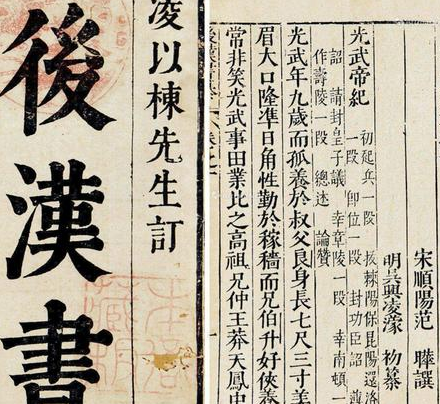 宋順陽范 曄撰
明吳興凌濛 初
光武帝紀 初起兵一段 拔棘陽保昆陽還洛
一段 卽位一段 封功臣詔
詔 請封皇子議 幸章陵一段 幸南頓一
作壽陵一段 總述 論贊
光武年九歲而孤養於叔父良身長七尺三寸美
眉大口隆準日角性勤於稼穡而兄伯升好俠養
常非笑光武事田業比之高祖兄仲王莽天鳳中
凌以棟先生訂
後漢書